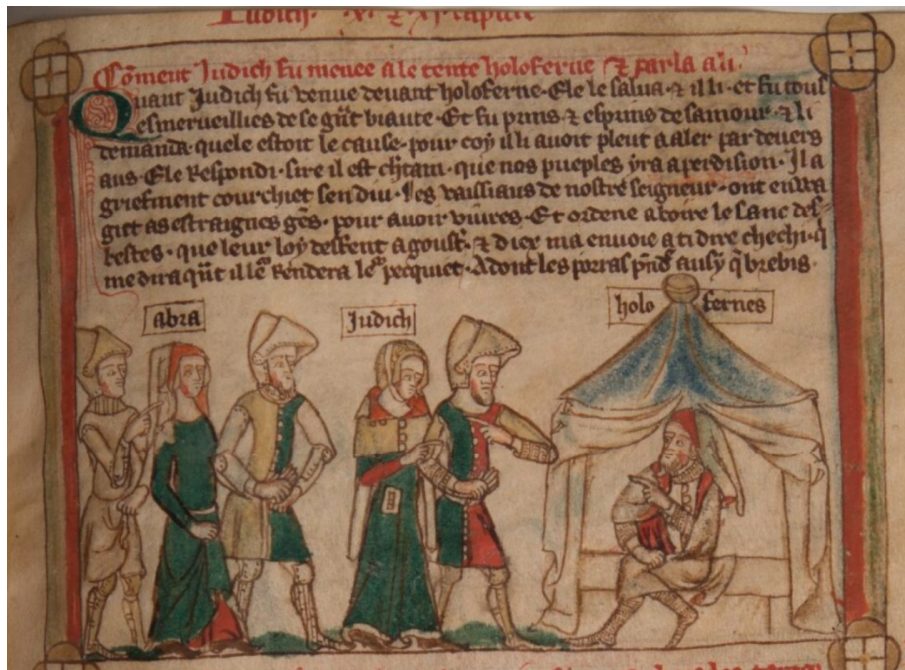 Judich.
Cõment Judich fu menee a le tente holoferne ⁊ parla a li.
Quant Judich fu venue devant holoferne. Ele le salua. ⁊ il li. et fu tous
esmerveillies de se gñt biaute. Et fu prins ⁊ esprins de samour. ⁊ li
demanda. quele estoit le cause. pour coy il li avoit pleut a aler par devers
aus. Ele Respondi. sire il est c̃tain. que nos pueples yra a perdision. Il a
griefment courchiet sen diu. Les vaissiaus de nostre seigneur. ont enva
giet as estraignes gẽs. pour avoir vivres. Et ordene a boire le sanc des
bestes. que leur loy deffent a goust̾. ⁊ diex ma envoie a ti dire chechi. q̃
me dira qñt il le᷑ Rendera le᷑ pecquiet. Adont les porras pñd̾ ausy q̃ brebis.
abra
Judich
holo fernes